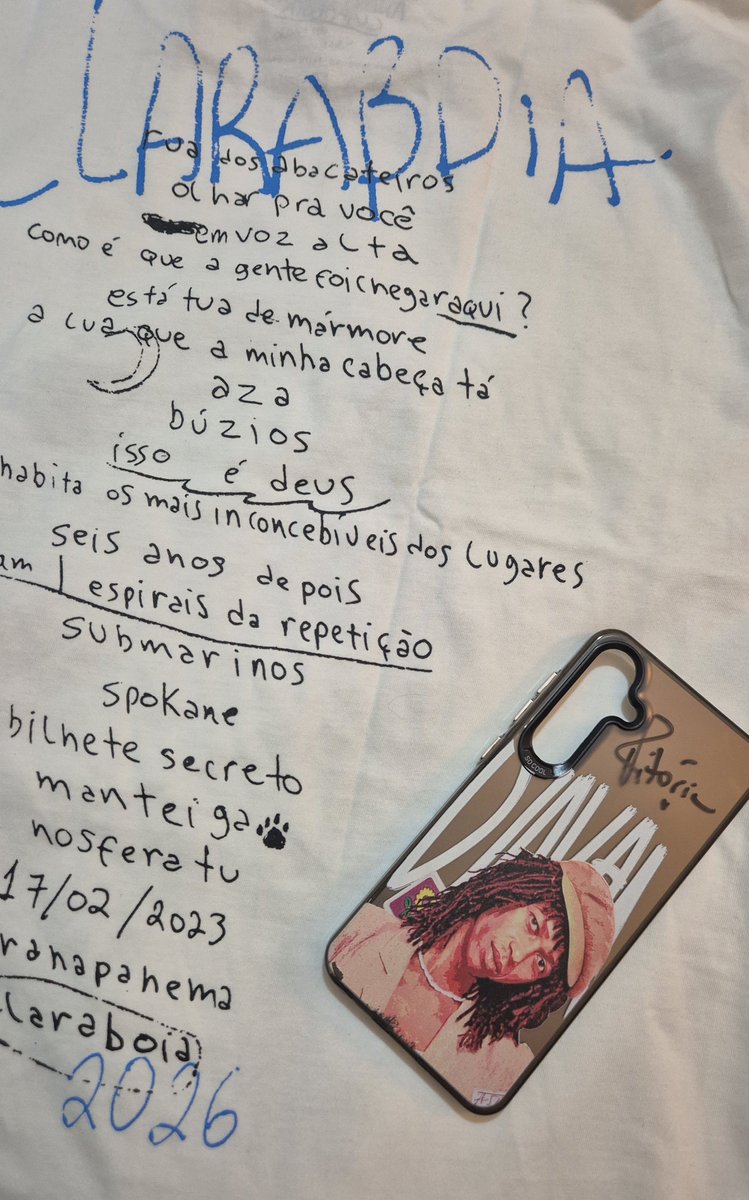 CLARABOIA.
rua dos abacateiros
olhar pra você
em voz alta
como é que a gente foi chegar aqui?
estátua de mármore
a lua que a minha cabeça tá
aza
búzios
isso é deus
habita os mais inconcebíveis dos lugares
seis anos depois
am | espirais da repetição
submarinos
spokane
bilhete secreto
manteiga
nosferatu
17/02/2023
ranapanema
claraboia
2026
SO COOL
Vitória